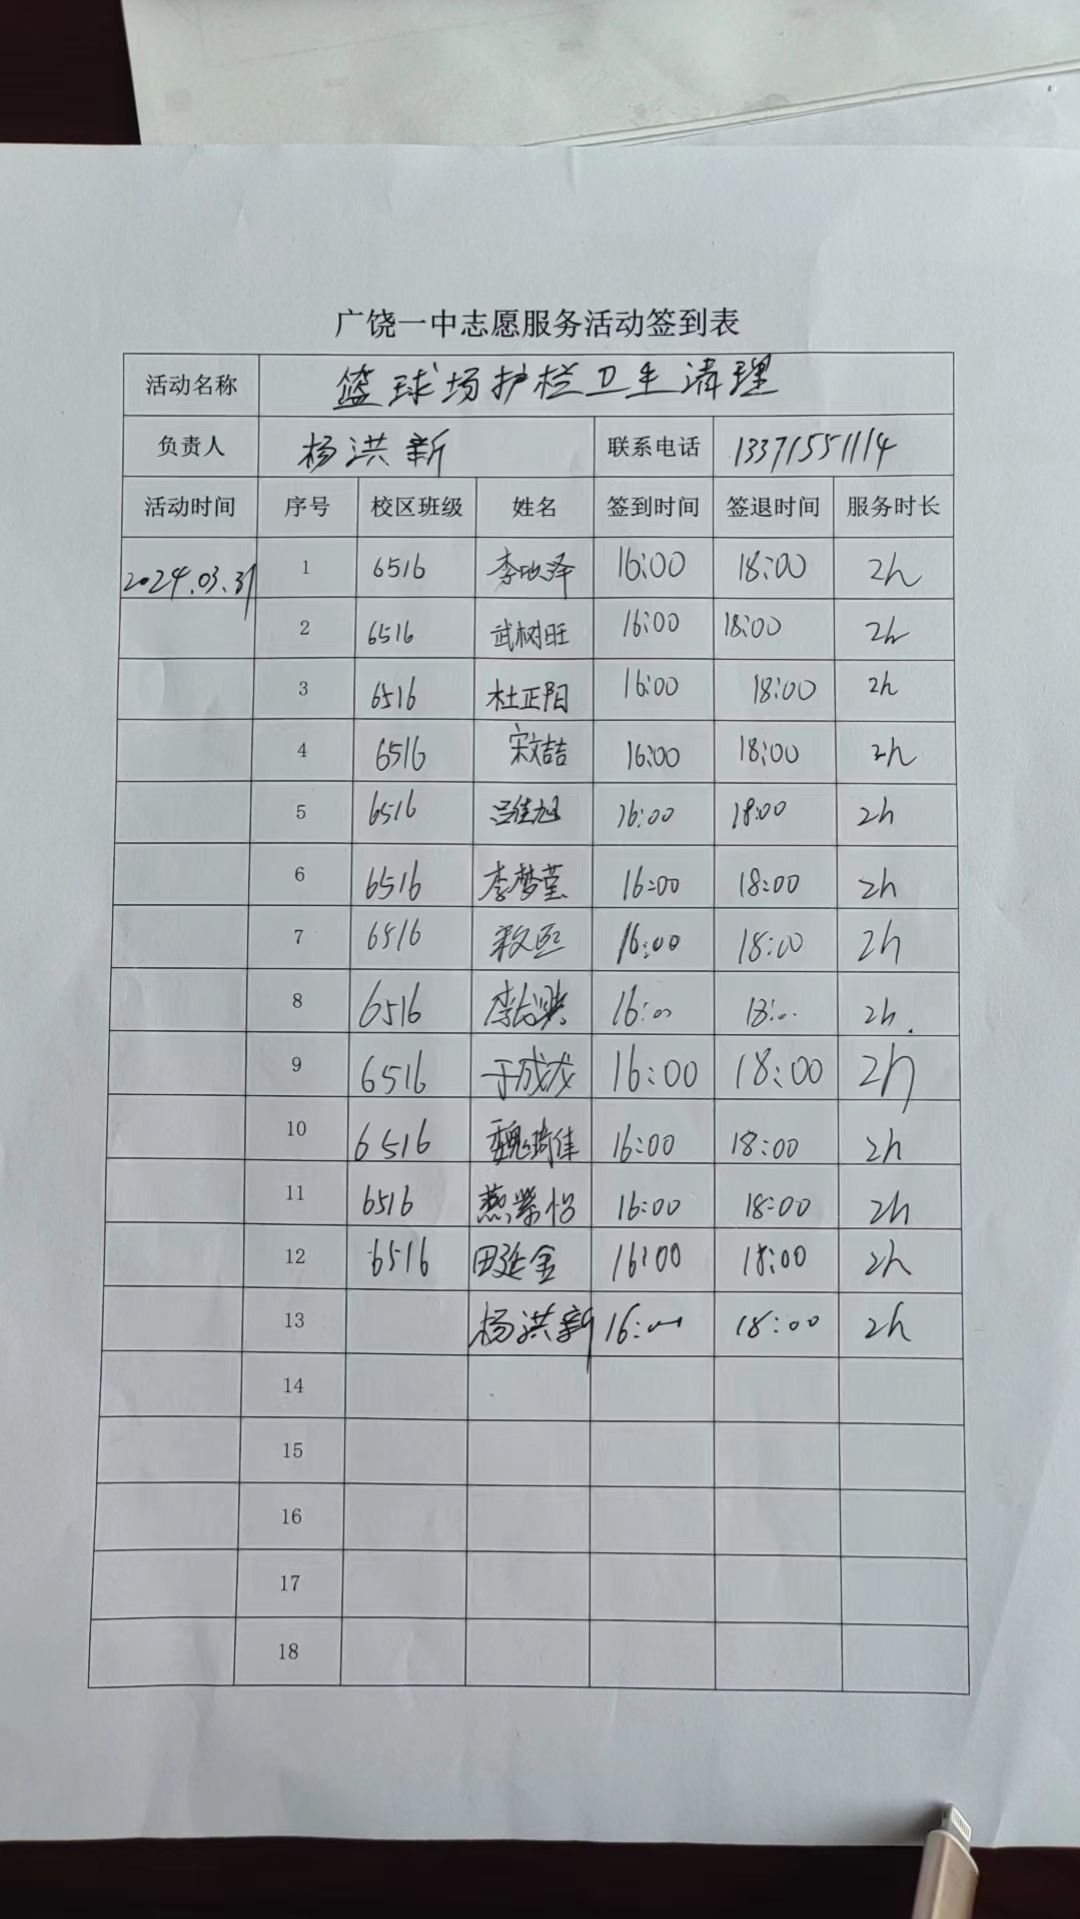 广饶一中志愿服务活动签到表
活动名称 篮球场护栏卫生清理
负责人 杨洪新 联系电话 13371551114
活动时间 序号 校区班级 姓名 签到时间 签退时间 服务时长
2024.03.31 1 6516 李 泽 16:00 18:00 2h
2 6516 武树旺 16:00 18:00 2h
3 6516 杜正阳 16:00 18:00 2h
4 6516 宋文喆 16:00 18:00 2h
5 6516 吕佳旭 16:00 18:00 2h
6 6516 李梦莹 16:00 18:00 2h
7 6516 16:00 18:00 2h
8 6516 李 16:00 18:00 2h.
9 6516 于成龙 16:00 18:00 2h
10 6516 魏琦佳 16:00 18:00 2h
11 6516 燕紫怡 16:00 18:00 2h
12 6516 田延金 16:00 18:00 2h
13 杨洪新 16:00 18:00 2h
14
15
16
17
18